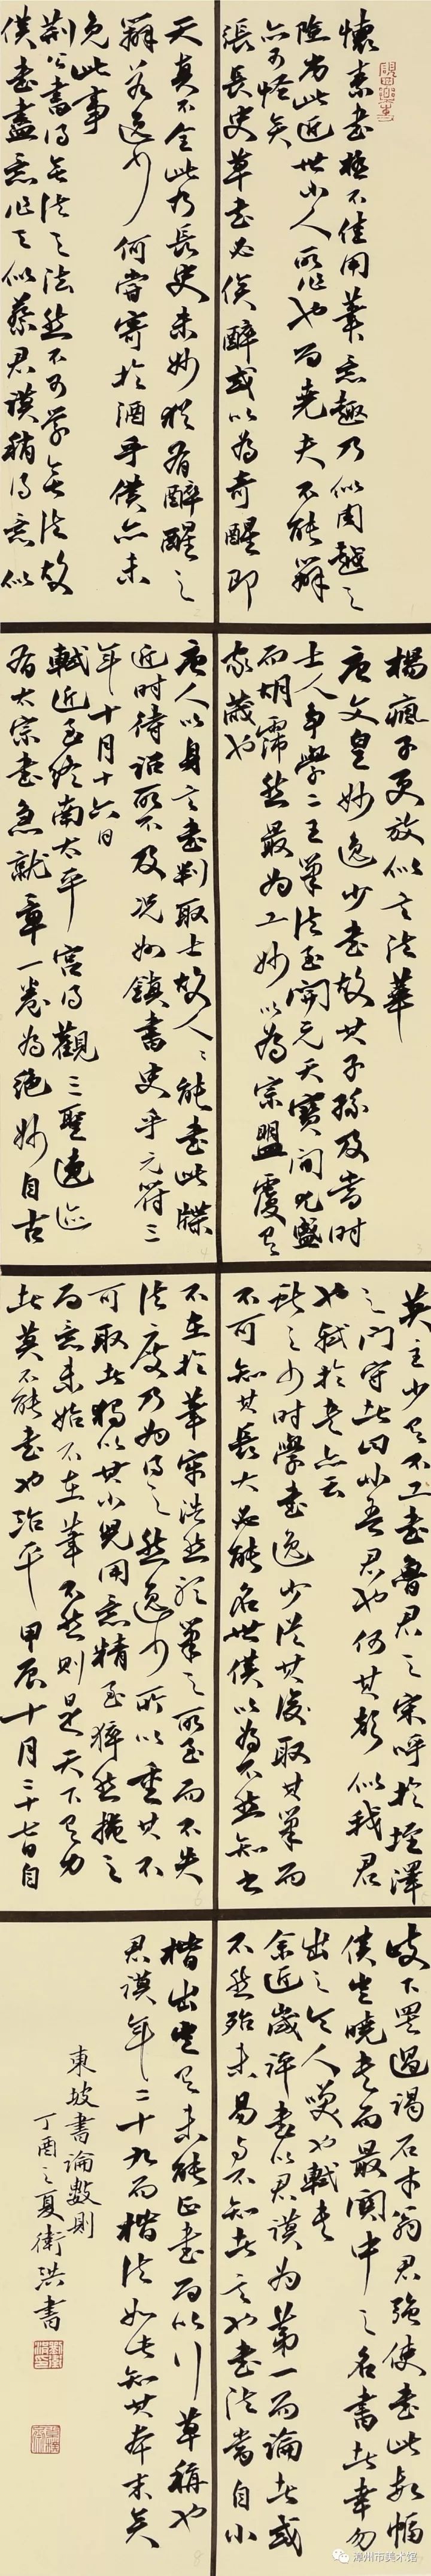 懷素書極不佳用筆意趣乃似周越之
險劣此近世小人所作也而堯夫不能辯
亦可怪矣
張長史草書必俟醉或以為奇醒即
天真不全此乃長史未妙猶有醉醒之
辯若逸少何嘗寄於酒乎僕亦未
免此事
荊公書得無法之法然不可學無法故
僕書盡意作之似蔡君謨稍得意似
楊瘋子更放似言法華
唐文皇妙逸少書故其子孫及當時
士人爭學二王筆法至開元天寶間尤盛
而胡霈然最為工妙以為宗盟覆有
家藏也
唐人以身言書判取士故人人能書此牒
近時待詔所不及況如鎮書史乎元符三
年十月十六日
軾近至終南太平宮得觀三聖遺迹
有太宗書急就章一卷為絕妙自古
英主少有不工書魯君之宋呼於垤澤
之門守者曰此非吾君也何其聲似我君
也軾於書亦云
獻之少時學書逸少從其後取其筆而
不可知其長大必能名世僕以為不然知書
不在於筆牢浩然聽筆之所至而不失
法度乃為得之然逸少所以重其不
可取者獨以其小兒用意精至猝然掩之
而意未始不在筆不然則是天下有力
者莫不能書也治平甲辰十月二十七日自
岐下罷過謁石才翁君強使書此數幅
僕豈曉書而最關中之名書者幸勿
出之令人笑也軾書
余近歲評書以君謨為第一而論者或
不然殆未易與不知者言也書法當自小
楷出豈有未能正書而以行草稱也
君謨年二十九而楷法如此知其本末矣
東坡書論數則
丁酉之夏衛洪書
漳州市美术馆